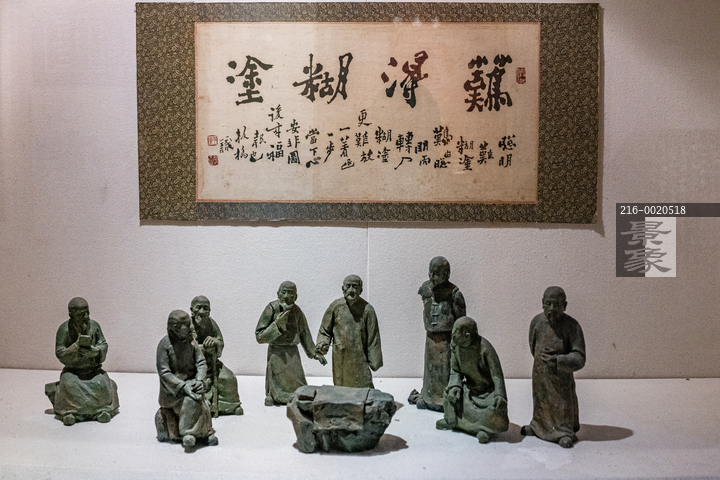 難得糊塗
聰明
難
糊塗
難由聰
明而
轉入
糊塗
更難放
一著退
一步
當下心
安非圖
後來福
報也
板橋
識
216-0020518
景象